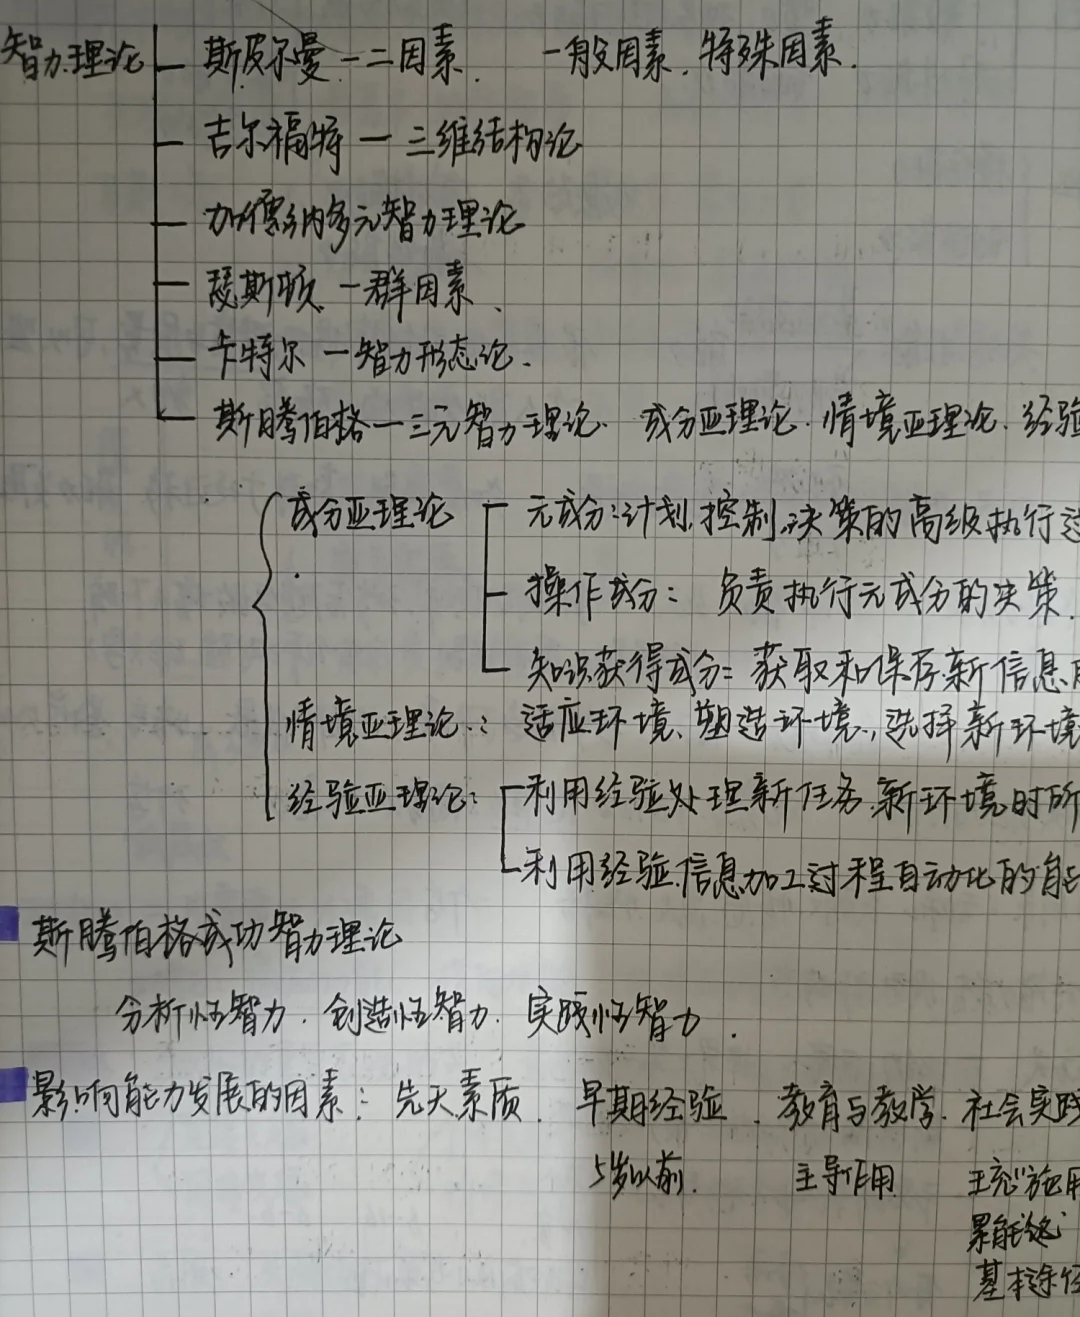 智力理论
斯皮尔曼一二因素. 一般因素. 特殊因素.
吉尔福特一三维结构论
加德纳多元智力理论
瑟斯顿一群因素、
卡特尔一智力形态论.
斯腾伯格一三元智力理论. 成分亚理论. 情境亚理论. 经验
成分亚理论 元成分:计划,控制,决策的高级执行过
操作成分: 负责执行元成分的决策.
知识获得成分: 获取和保存新信息
情境亚理论: 适应环境、塑造环境,选择新环境
经验亚理论: 利用经验处理新任务.新环境时所
利用经验信息加工过程自动化的能
斯腾伯格成功智力理论
分析性智力. 创造性智力. 实践性智力.
影响能力发展的因素: 先天素质. 早期经验. 教育与教学. 社会实践
5岁以前. 主导作用 王充"施用
累能
基本途径